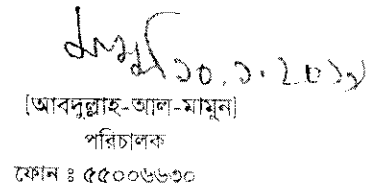 ১০.১.২০১৮
[আবদুল্লাহ-আল-মামুন]
পরিচালক
ফোন ঃ ৫৫০০৬৬৩০